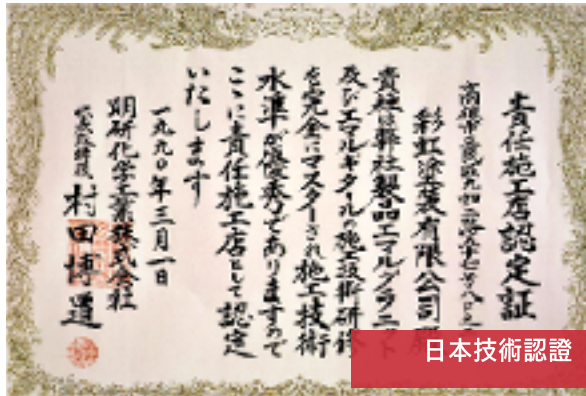 責任施工店認定証
高雄市
彩虹塗装有限公司殿
貴社は弊社製品エマルグラニット
及びエマルギタールの施工技術研修
を完全にマスターされ施工技術
水準が優秀でありますので
ここに責任施工店として認定
いたします
一九九〇年三月一日
明研化学工業株式会社
村田博道
日本技術認證